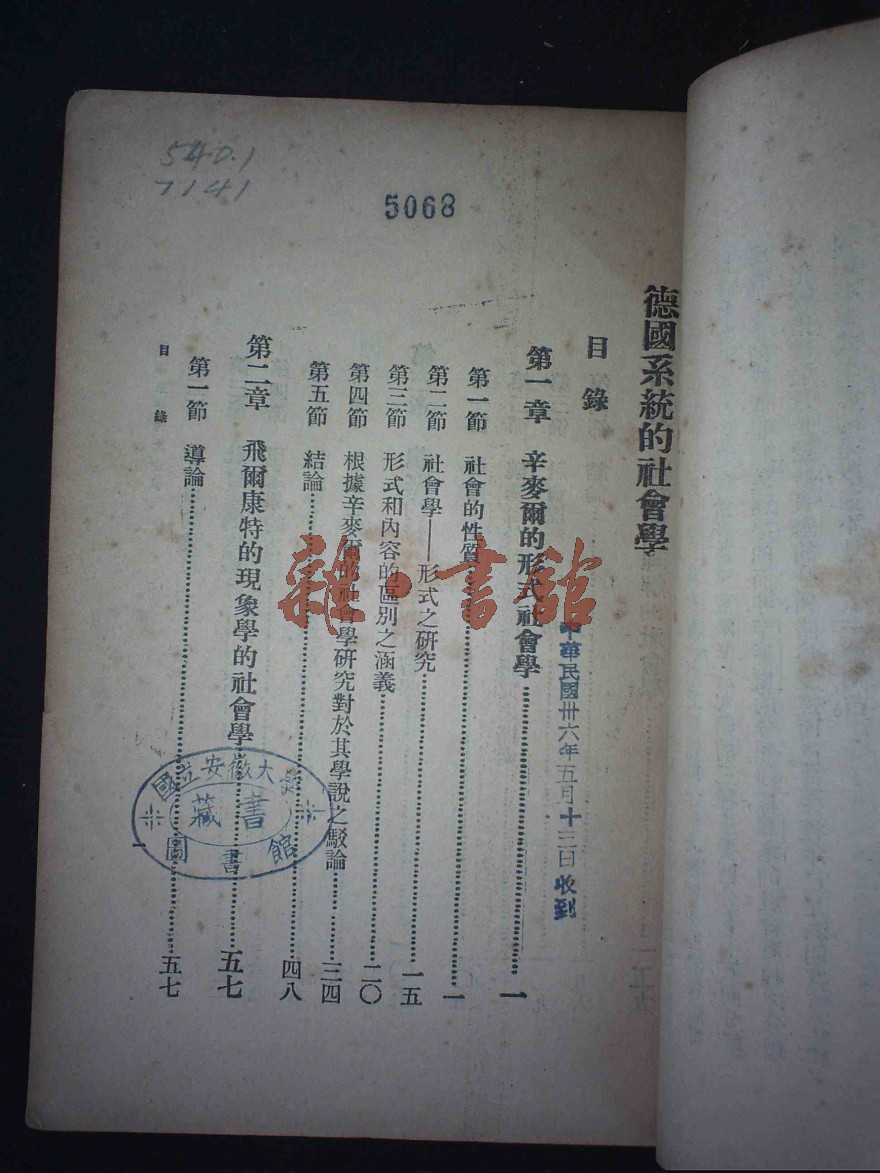 540.1
7141
5068
德國系統的社會學
目錄
第一章 辛麥爾的形式社會學⋯⋯一
第一節 社會的性質⋯⋯一
第二節 社會學——形式之研究⋯⋯一五
第三節 形式和內容的區別之涵義⋯⋯二〇
第四節 根據辛麥爾的社會學研究對於其學說之駁論⋯⋯三四
第五節 結論⋯⋯四八
第二章 飛爾康特的現象學的社會學⋯⋯五七
第一節 導論⋯⋯五七
目錄
一
中華民國卅六年五月十三日收到
國立安徽大學
藏書
圖書館